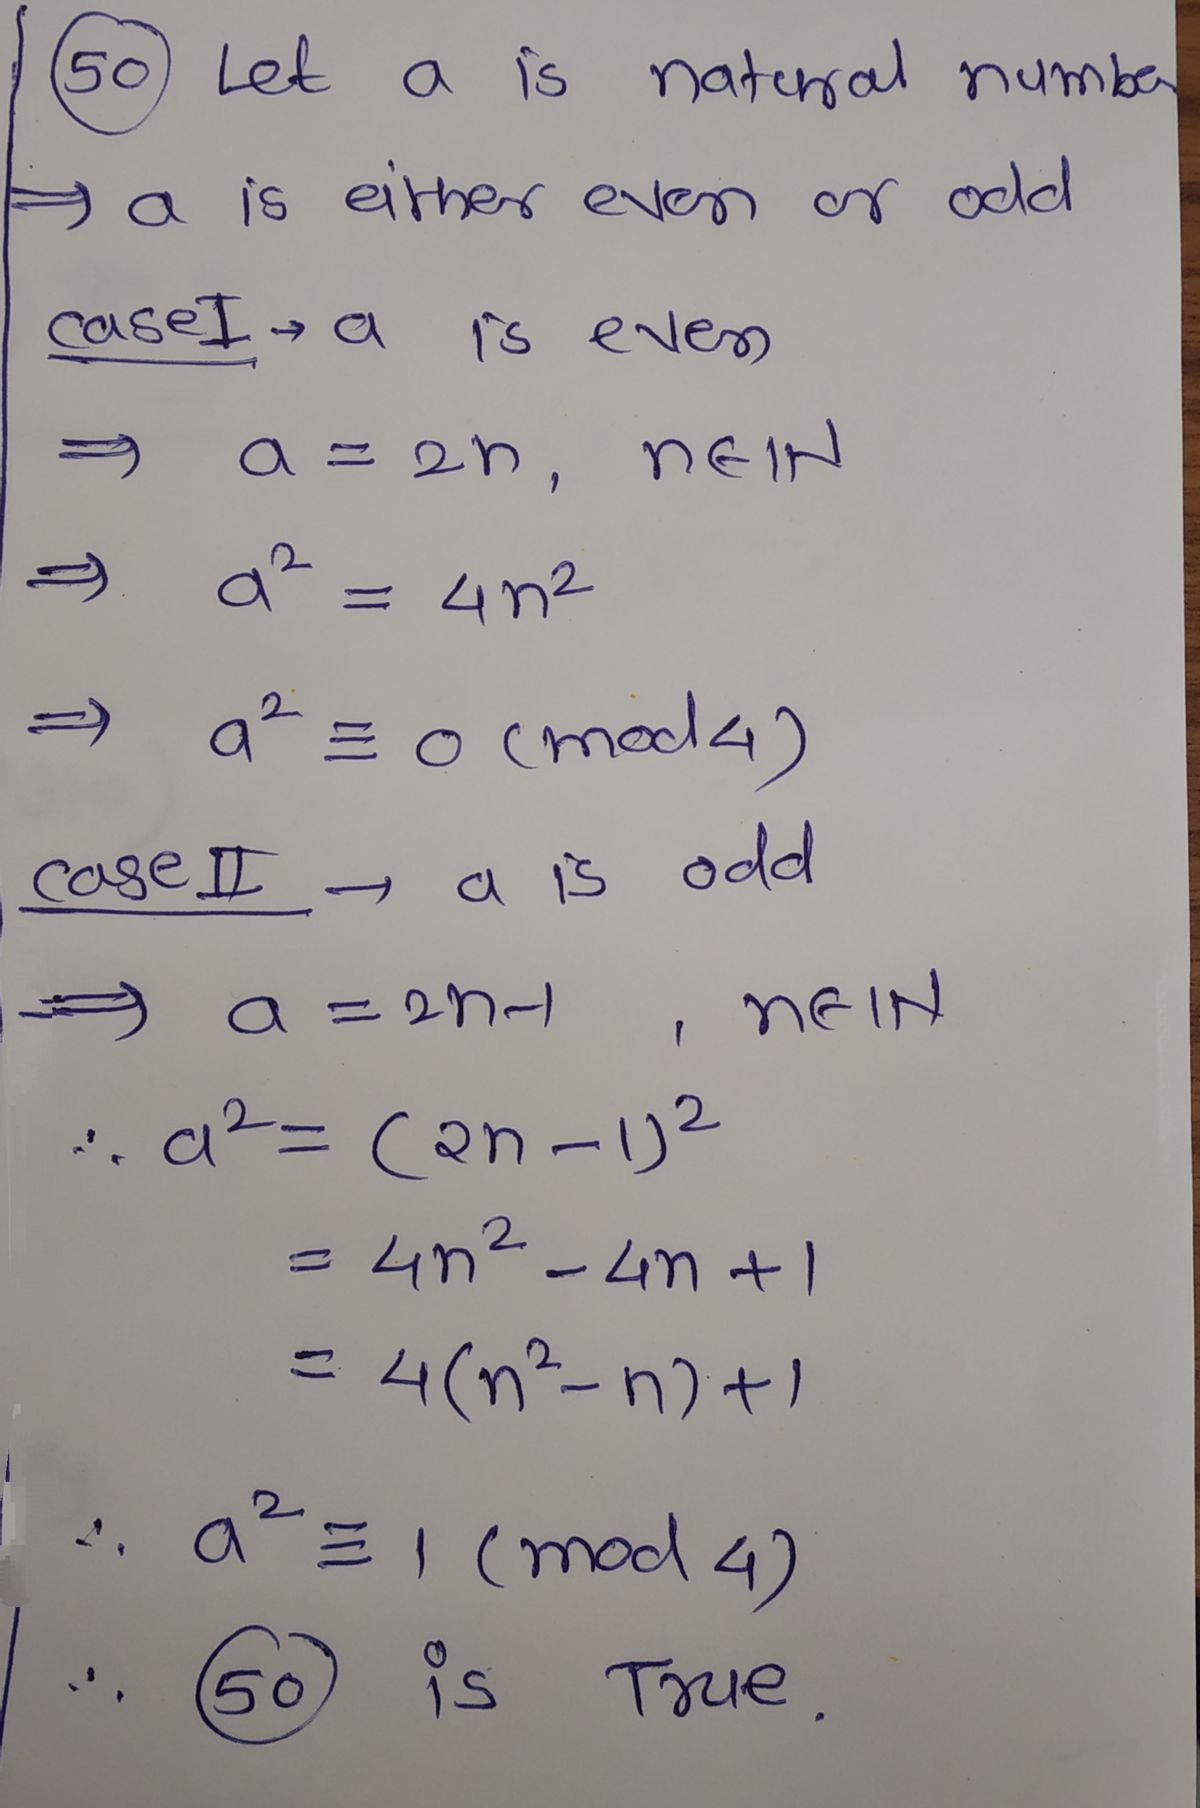 50 Let a is natural number
⇒ a is either even or odd
case I → a is even
⇒ a = 2n, n∈IN
⇒ a² = 4n²
⇒ a² ≡ 0 (mod 4)
case II → a is odd
⇒ a = 2n-1 , n∈IN
∴ a² = (2n - 1)²
= 4n² - 4n + 1
= 4(n² - n) + 1
∴ a² ≡ 1 (mod 4)
∴ 50 is True.